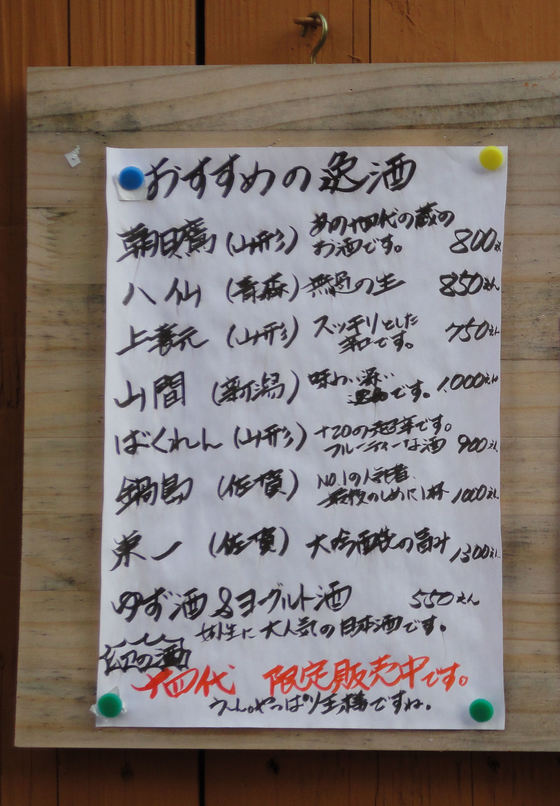 おすすめの逸酒
朝日鷹 (山形) あの十四代の蔵の
お酒です。 800円
八仙 (青森) 無濾過の生 850えん
上喜元 (山形) スッキリとした
辛口です。 750えん
山間 (新潟) 味わい深い
です。 1,000えん
ばくれん (山形) +20の超辛です。
フルーティーな酒 900えん
鍋島 (佐賀) No.1の人気者
最後のしめに1杯 1000えん
東一 (佐賀) 大吟醸の旨み 1300えん
ゆず酒&ヨーグルト酒 550えん
女性に大人気の日本酒です。
幻の酒
十四代 限定販売中です。
うーん。やっぱり王様ですね。